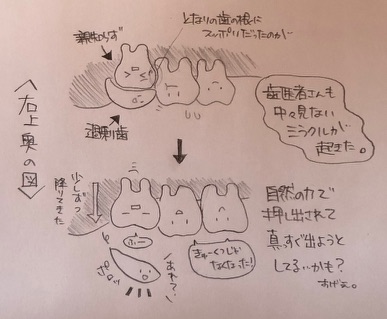 親知らず
となりの歯の根に
スッポリだったのが
〈右上奥の図〉
過剰歯
歯医者さんも
中々見ない
ミラクルが
起きた。
少しずつ
降りてきた
ふー
ポロッ
あれ〜い
きゅーくつじゃ
なくなった!
自然の力で
押し出されて
真っすぐ出ようと
してるいかも?
すげぇ。